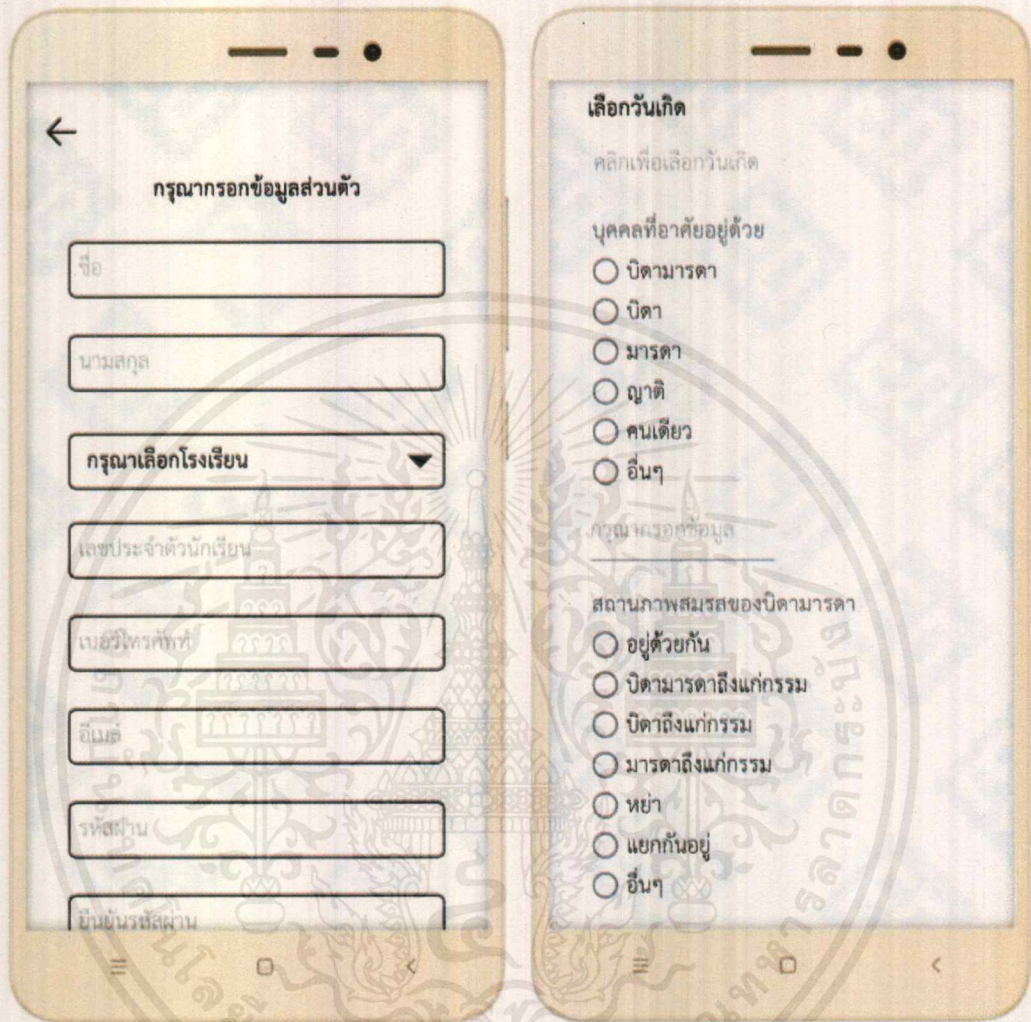 กรุณากรอกข้อมูลส่วนตัว
ชื่อ
นามสกุล
กรุณาเลือกโรงเรียน
เลขประจำตัวนักเรียน
เบอร์โทรศัพท์
อีเมล์
รหัสผ่าน
ยืนยันรหัสผ่าน
เลือกวันเกิด
คลิกเพื่อเลือกวันเกิด
บุคคลที่อาศัยอยู่ด้วย
บิดามารดา
บิดา
มารดา
ญาติ
คนเดียว
อื่นๆ
กรุณากรอกข้อมูล
สถานภาพสมรสของบิดามารดา
อยู่ด้วยกัน
บิดามารดาถึงแก่กรรม
บิดาถึงแก่กรรม
มารดาถึงแก่กรรม
หย่า
แยกกันอยู่
อื่นๆ